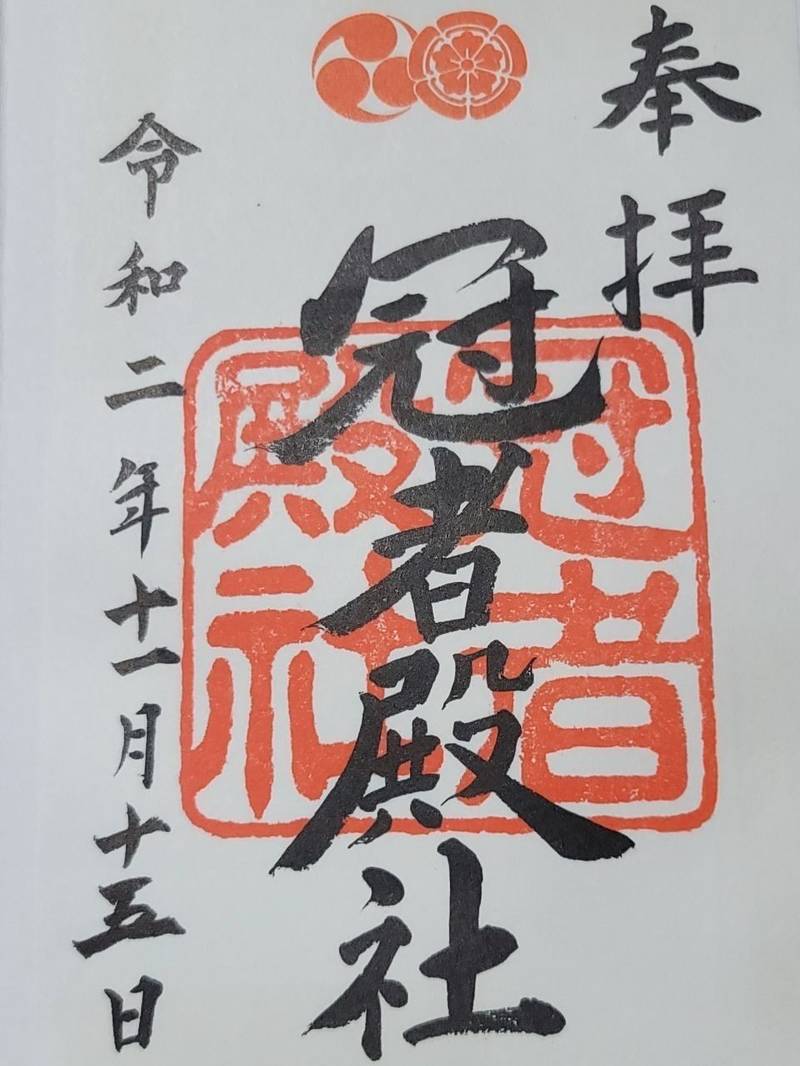 奉拝
冠者殿社
冠者殿社
令和二年十一月十五日